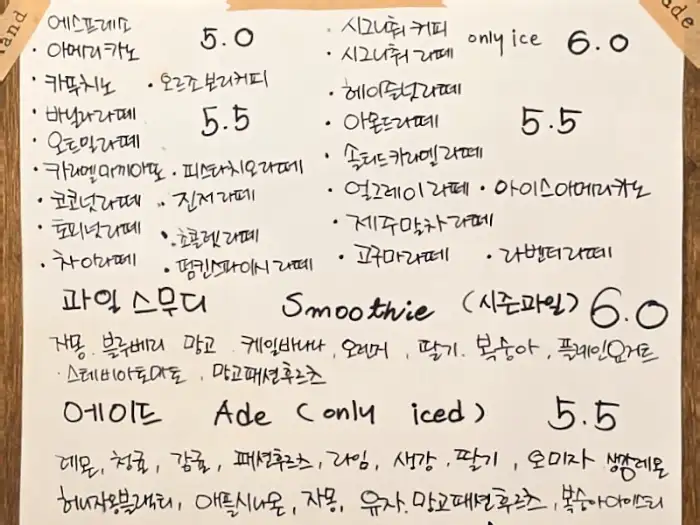 and
ade
에스프레소
· 아메리카노 5.0
· 카푸치노 · 오르조 보리커피
· 바닐라라떼 5.5
· 오트밀라떼
· 카라멜마끼아또 · 피스타치오라떼
· 코코넛라떼 · 진저라떼
· 토피넛라떼 · 초콜렛라떼
· 차이라떼 · 펌킨스파이시라떼
· 시그니춰 커피
· 시그니춰 라떼 only ice 6.0
· 헤이즐넛라떼
· 아몬드라떼 5.5
· 솔티드카라멜라떼
· 얼그레이라떼 · 아이스아메리카노
· 제주말차라떼
· 고구마라떼 · 라벤더라떼
과일스무디 Smoothie (시즌과일) 6.0
자몽. 블루베리 망고 . 케일바나나, 오렌지 , 딸기. 복숭아, 플레인요거트
· 스테비아토마토 , 망고패션후르츠
에이드 Ade (only iced) 5.5
레몬, 청귤, 감귤, 패션후르츠, 라임, 생강, 딸기, 오미자 생강레몬
허니자몽블랙티, 애플시나몬, 자몽, 유자, 망고패션후르츠, 복숭아아이스티